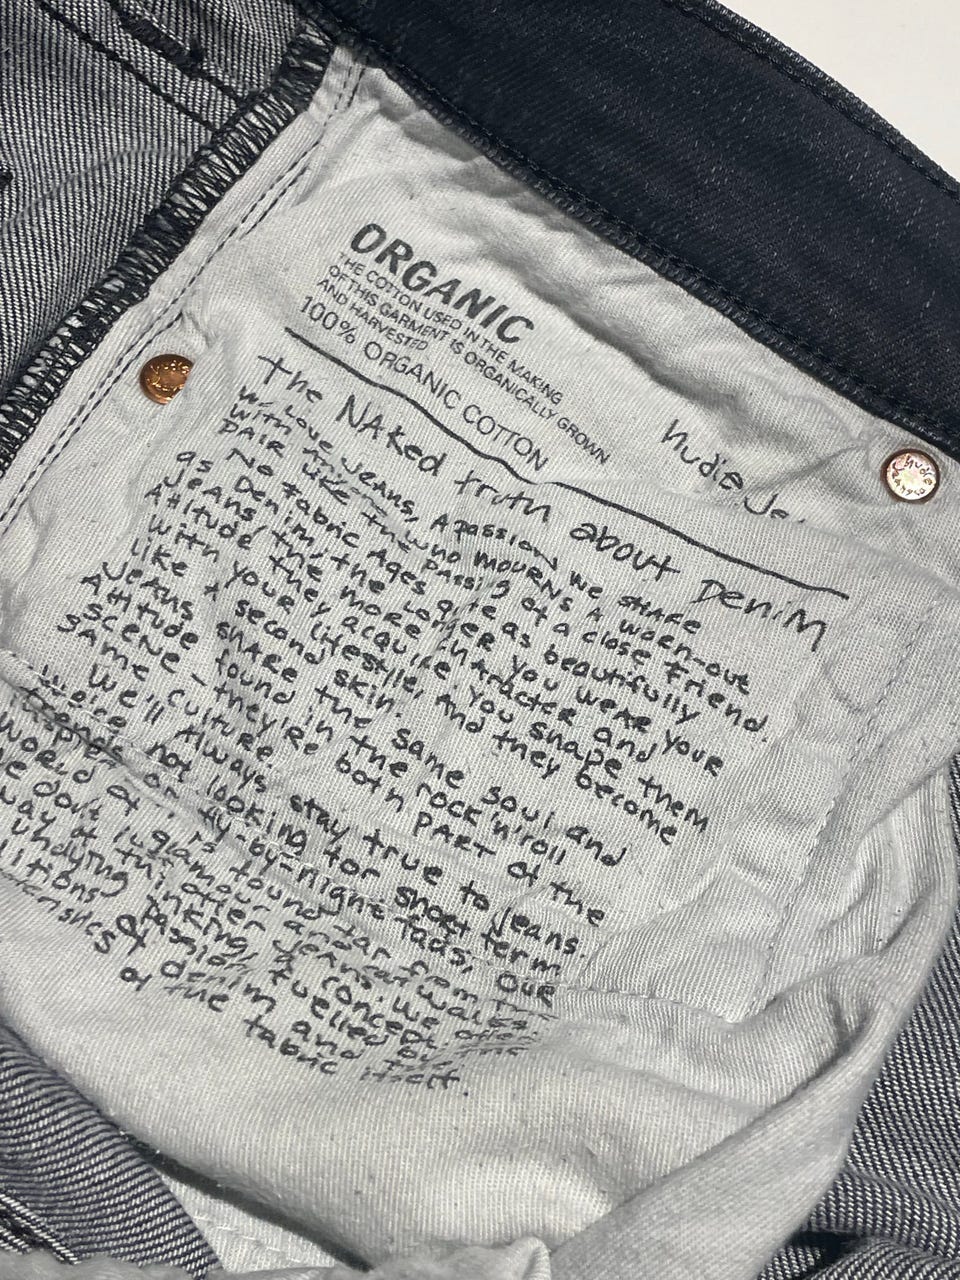 ORGANIC
THE COTTON USED IN THE MAKING
OF THIS GARMENT IS ORGANICALLY GROWN
AND HARVESTED
100% ORGANIC COTTON
nudie Je
The NAKed truth about DeniM
We Love Jeans, A passion we share
with
who mourns A worn-out
PAIR Like The PAssing of a close friend.
No fabric Ages quite as beautifully
as Denim, the longer you wear your
Jeans the more character and
Attitude they acquire. You shape them
with your lifestyle, and they become
Like A second skin.
Jeans share the same soul and
Attitude found in the rock'n'roll
scene - they're both PART of the
same culture.
We'll Always stay true to jeans.
We're not looking for short term
trends or fly-by-night fads, OUR
world is found far from the
glamour and catwalks.
We don't offer jeans
concept. We offer
way of thinking, a
undying passion, fuelled by the
traditions of denim and the
of the fabric itself.
nudie
Jeans